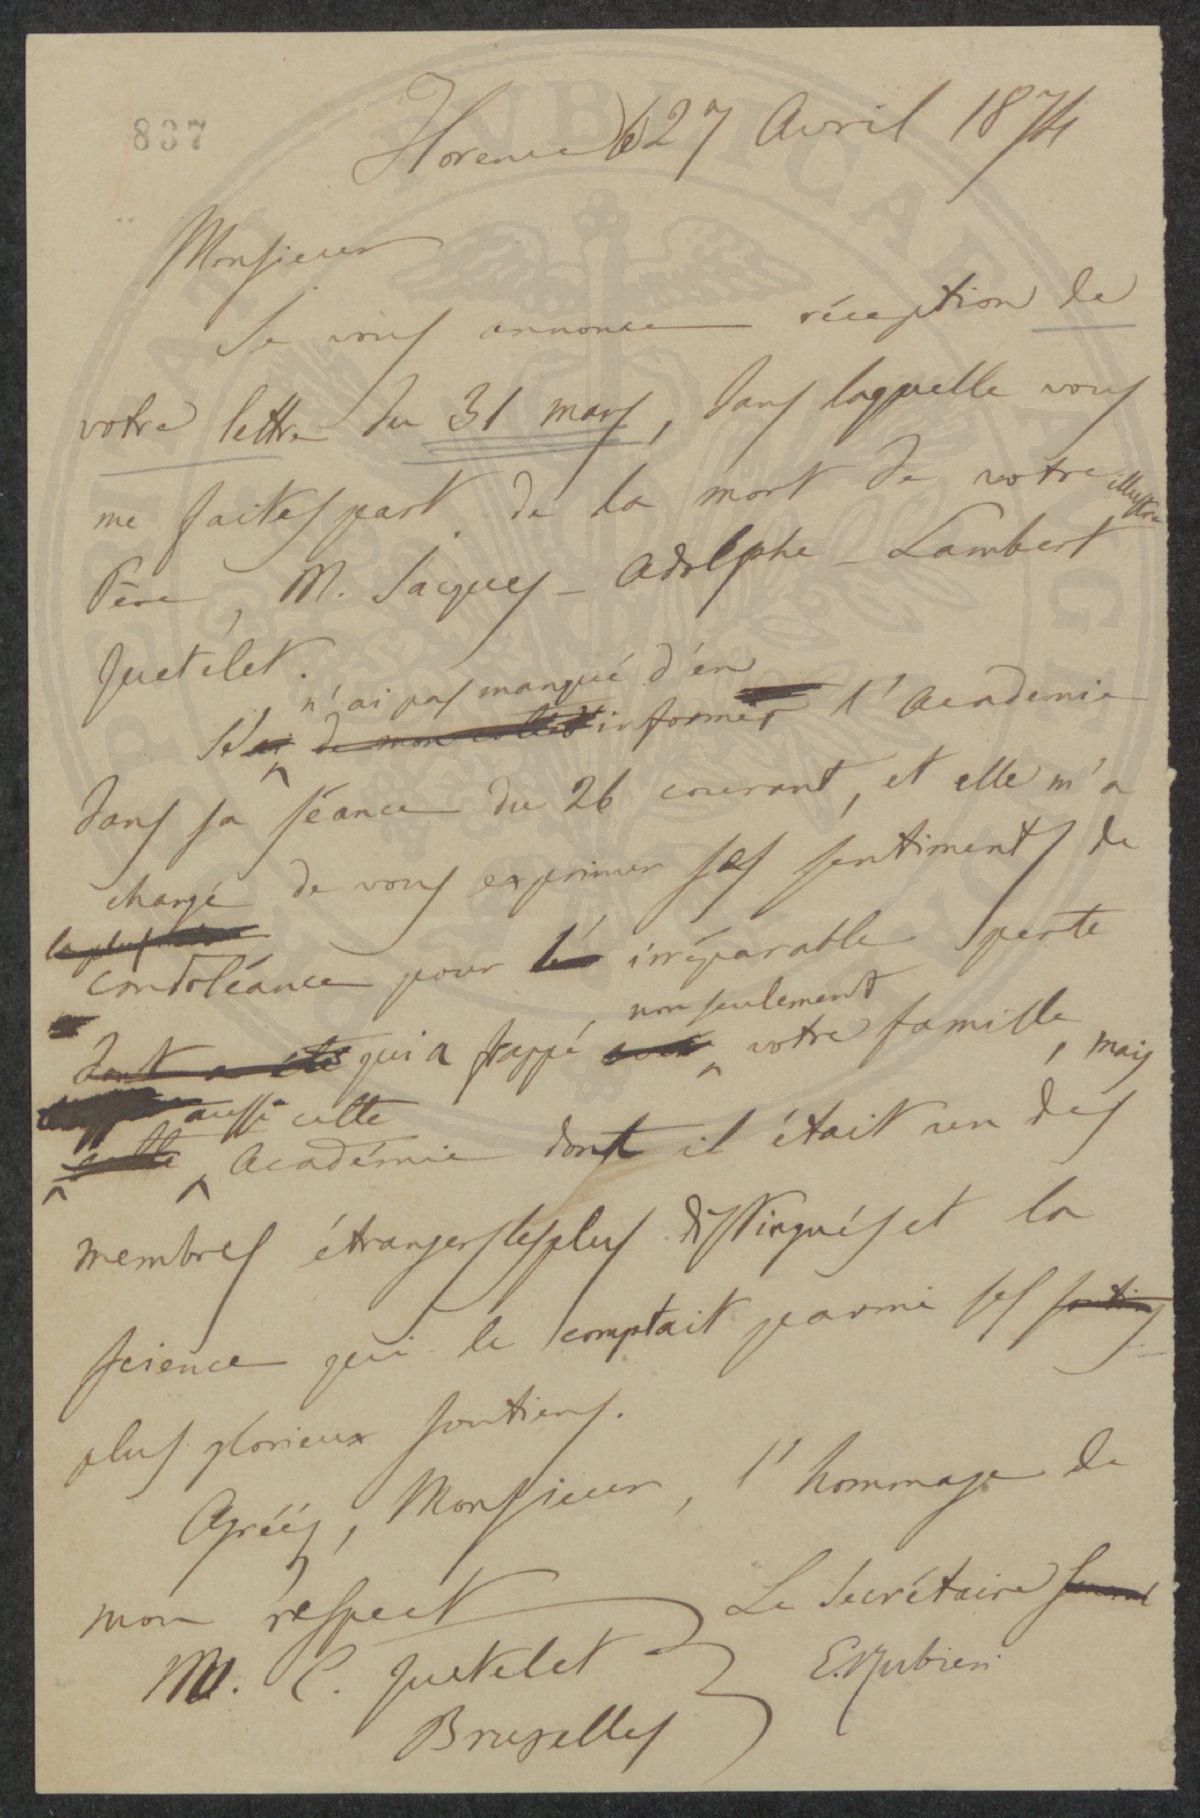 837
Florence le 27 Avril 1874
Monsieur
Je vous annonce réception de
votre lettre du 31 mars, dans laquelle vous
me faites part de la mort de votre illustre
Père, M. Jacques-Adolphe-Lambert
Quetélet.
n'ai pas manqué d'en
Je de mon informer l'Academie
dans sa séance du 26 courant, et elle m'a
chargé de vous exprimer ses sentiments de
la plus
condoléance pour irréparable perte
non seulement
dont a été qui a frappé votre famille, mais
aussi cette
cette Académie dont il était un des
membres étrangers les plus distingués et la
science qui le comptait parmi ses soutiens
plus glorieux soutiens.
Agréez, Monsieur, l'hommage de
mon respect
Le Secrétaire General
M. C. Quetelet
E. Rubieri
Bruxelles